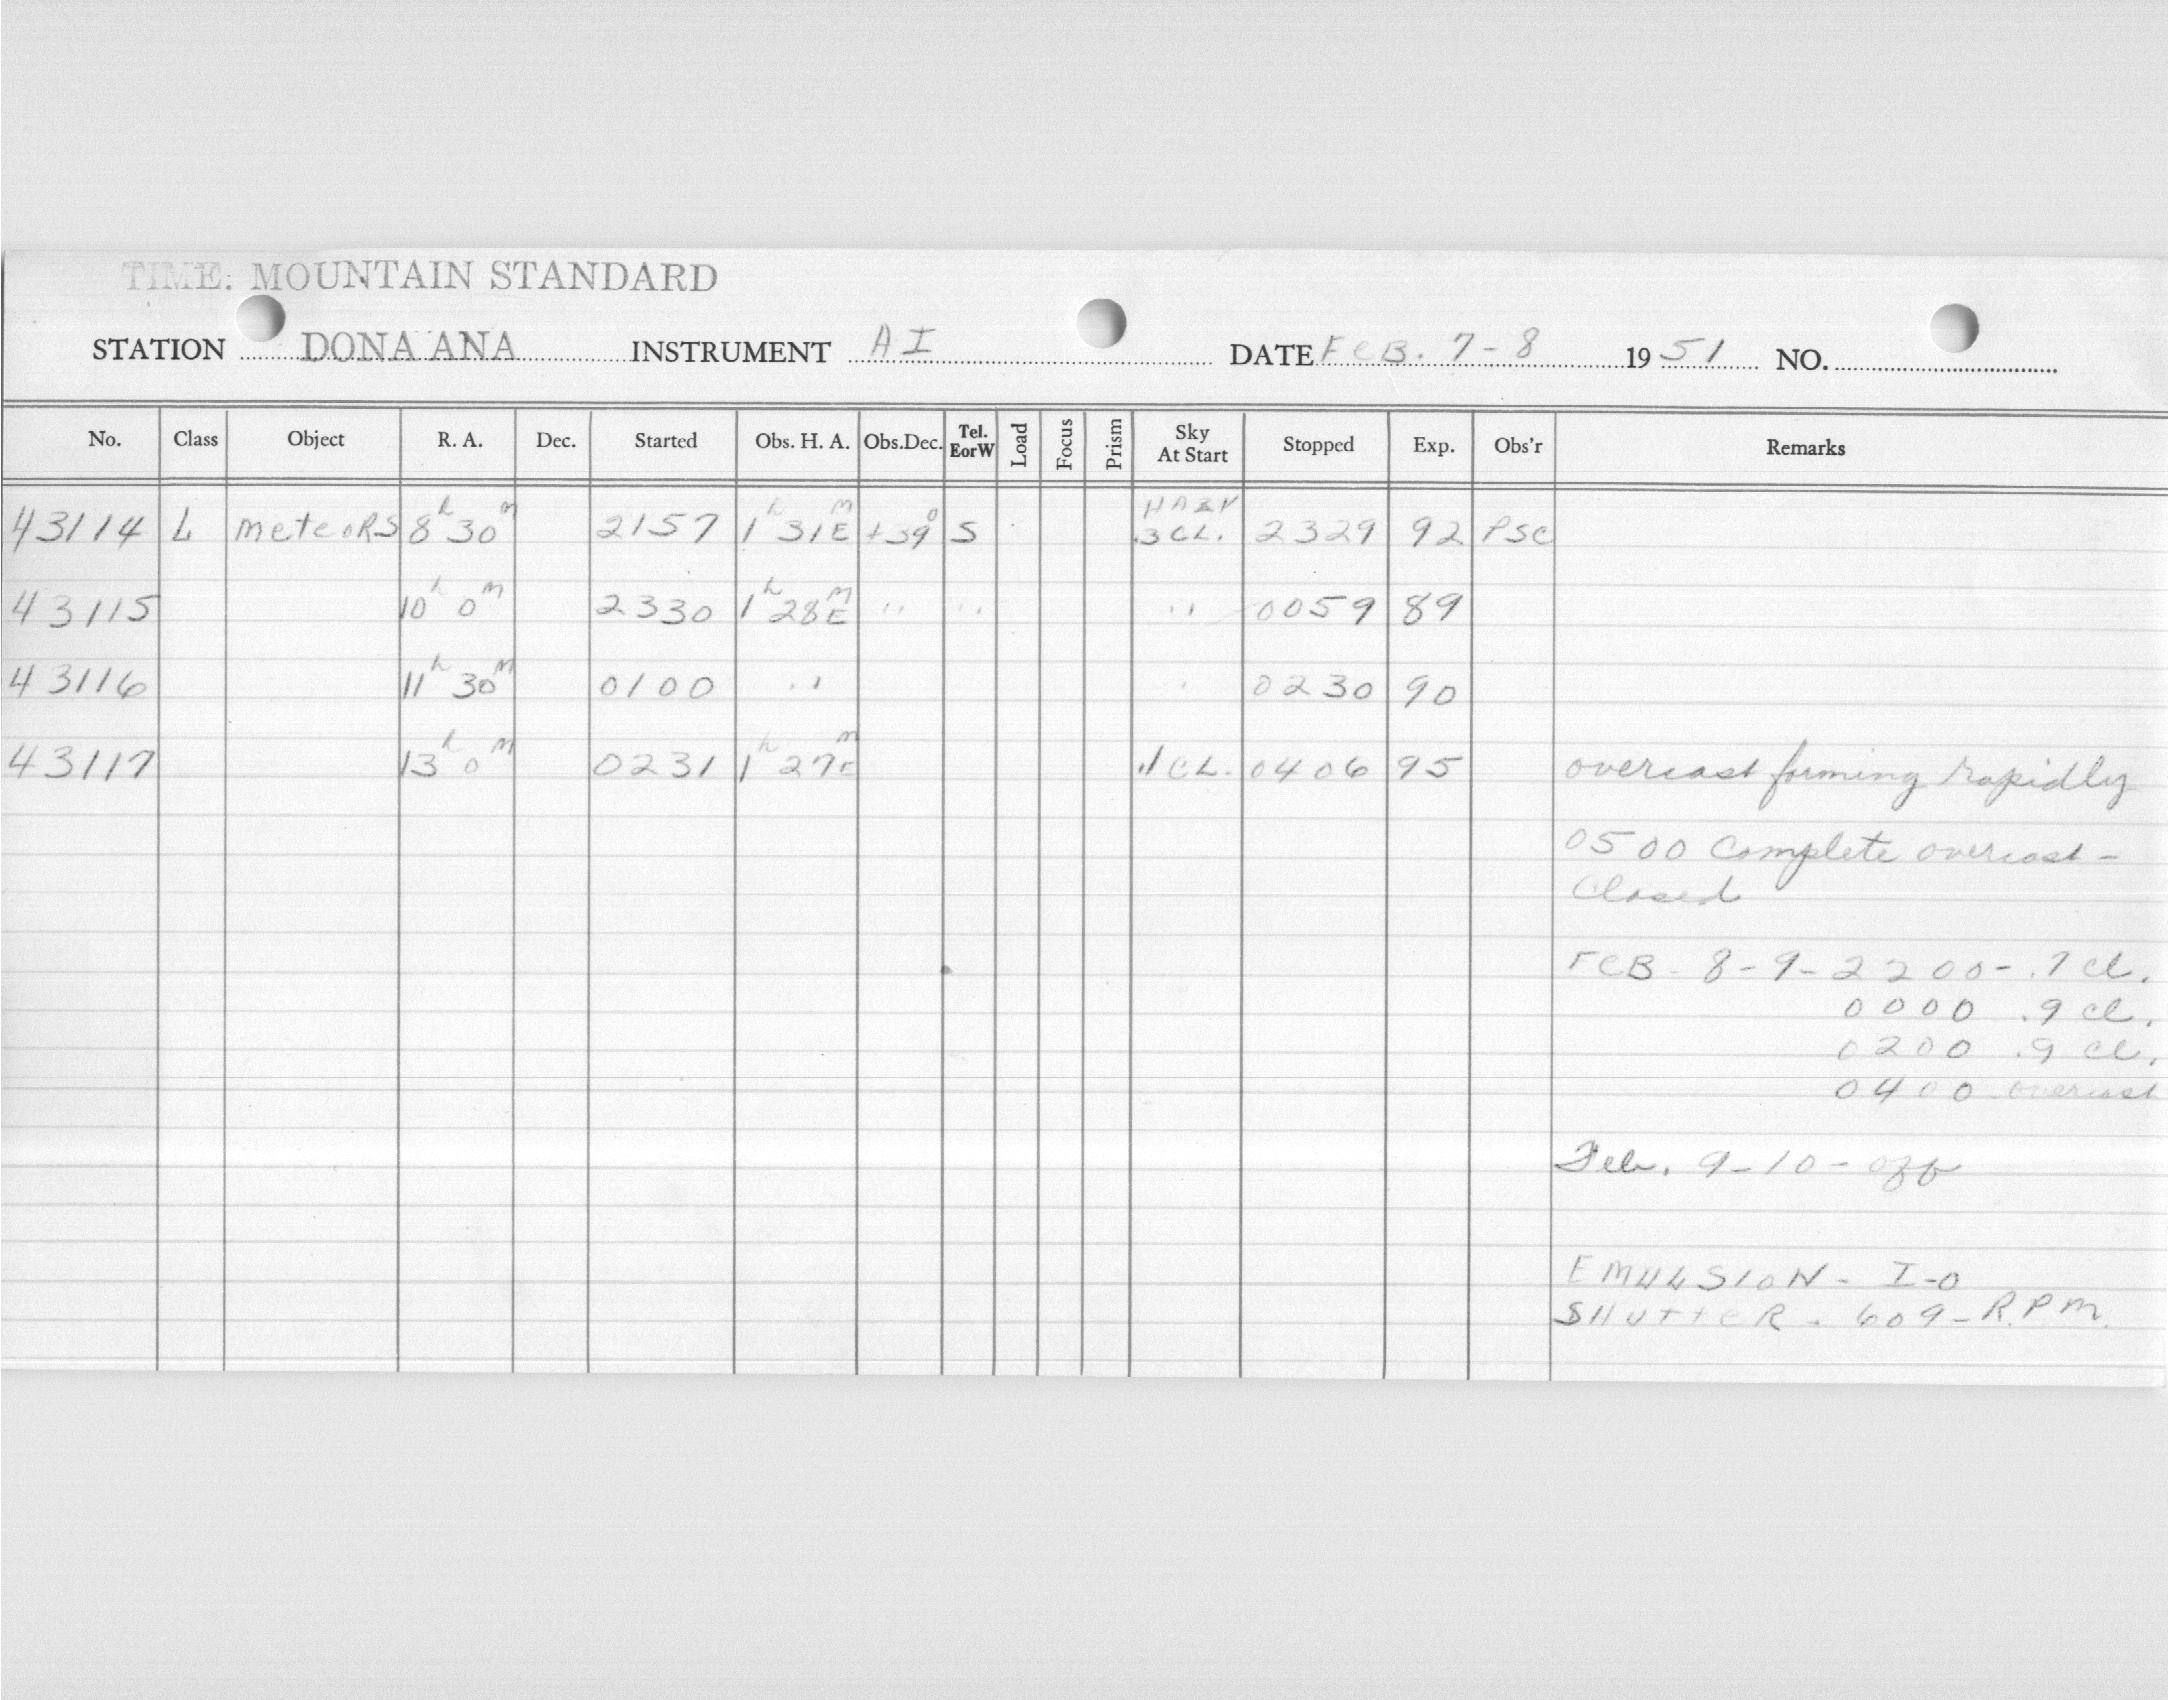 TIME: MOUNTAIN STANDARD
STATION DONA ANA INSTRUMENT AI DATE FEB. 7-8 1951 NO.
No. Class Object R. A. Dec. Started Obs. H. A. Obs.Dec. Tel. EorW Load Focus Prism Sky At Start Stopped Exp. Obs'r Remarks
43114 L meteoRS 8h 30m 2157 1h 31m E +39° S HAZY .3 CL. 2329 92 PSC
43115 10h 0m 2330 1h 28m E " " " 0059 89
43116 11h 30m 0100 " " 0230 90
43117 13h 0m 0231 1h 27m E .1 CL. 0406 95 overcast forming rapidly
0500 Complete overcast -
Closed
FEB - 8-9- 2200- .7 cl.
0000 .9 cl.
0200 .9 cl.
0400 overcast
Feb. 9-10- off
EMULSION - I-O
SHUTTER - 609- R.P.M.